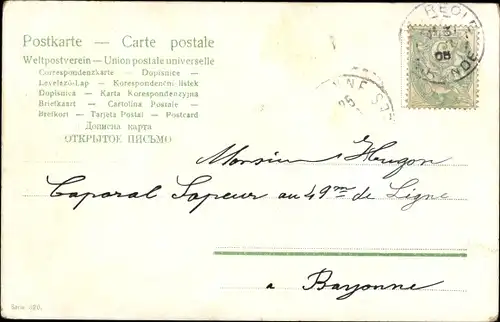 Postkarte — Carte postale
Weltpostverein — Union postale universelle
Correspondenzkarte — Dopisnice —
Levelező-Lap — Korespondenční lístek
Dopisnica — Karta Korespondencyjna
Briefkaart — Cartolina Postale —
Brefkort — Tarjeta Postal — Postcard
Дописна карта
ОТКРЫТОЕ ПИСЬМО
08
25
Monsieur Hugon
Caporal Sapeur au 49me de Ligne
a Bayonne